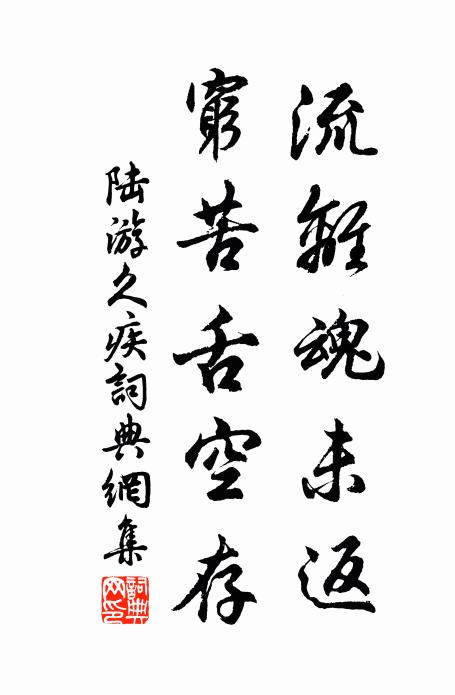 流離魂未返
窮苦舌空存
陆游久疾詞典網集
詞典網印